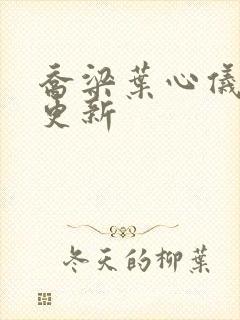 乔梁葉心儀
更新
冬天的柳葉